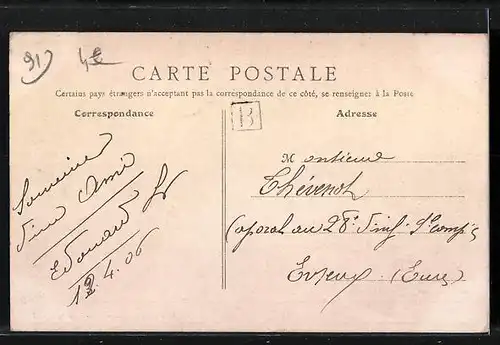 91) 4€
CARTE POSTALE
Certains pays étrangers n'acceptant pas la correspondance de ce côté, se renseigner à la Poste
Correspondance
B
Adresse
Souvenir
d'un Ami
Edouard
4.06
Monsieur
Thévenot
Caporal au 28e d'inf. Cie
Evreux (Eure)